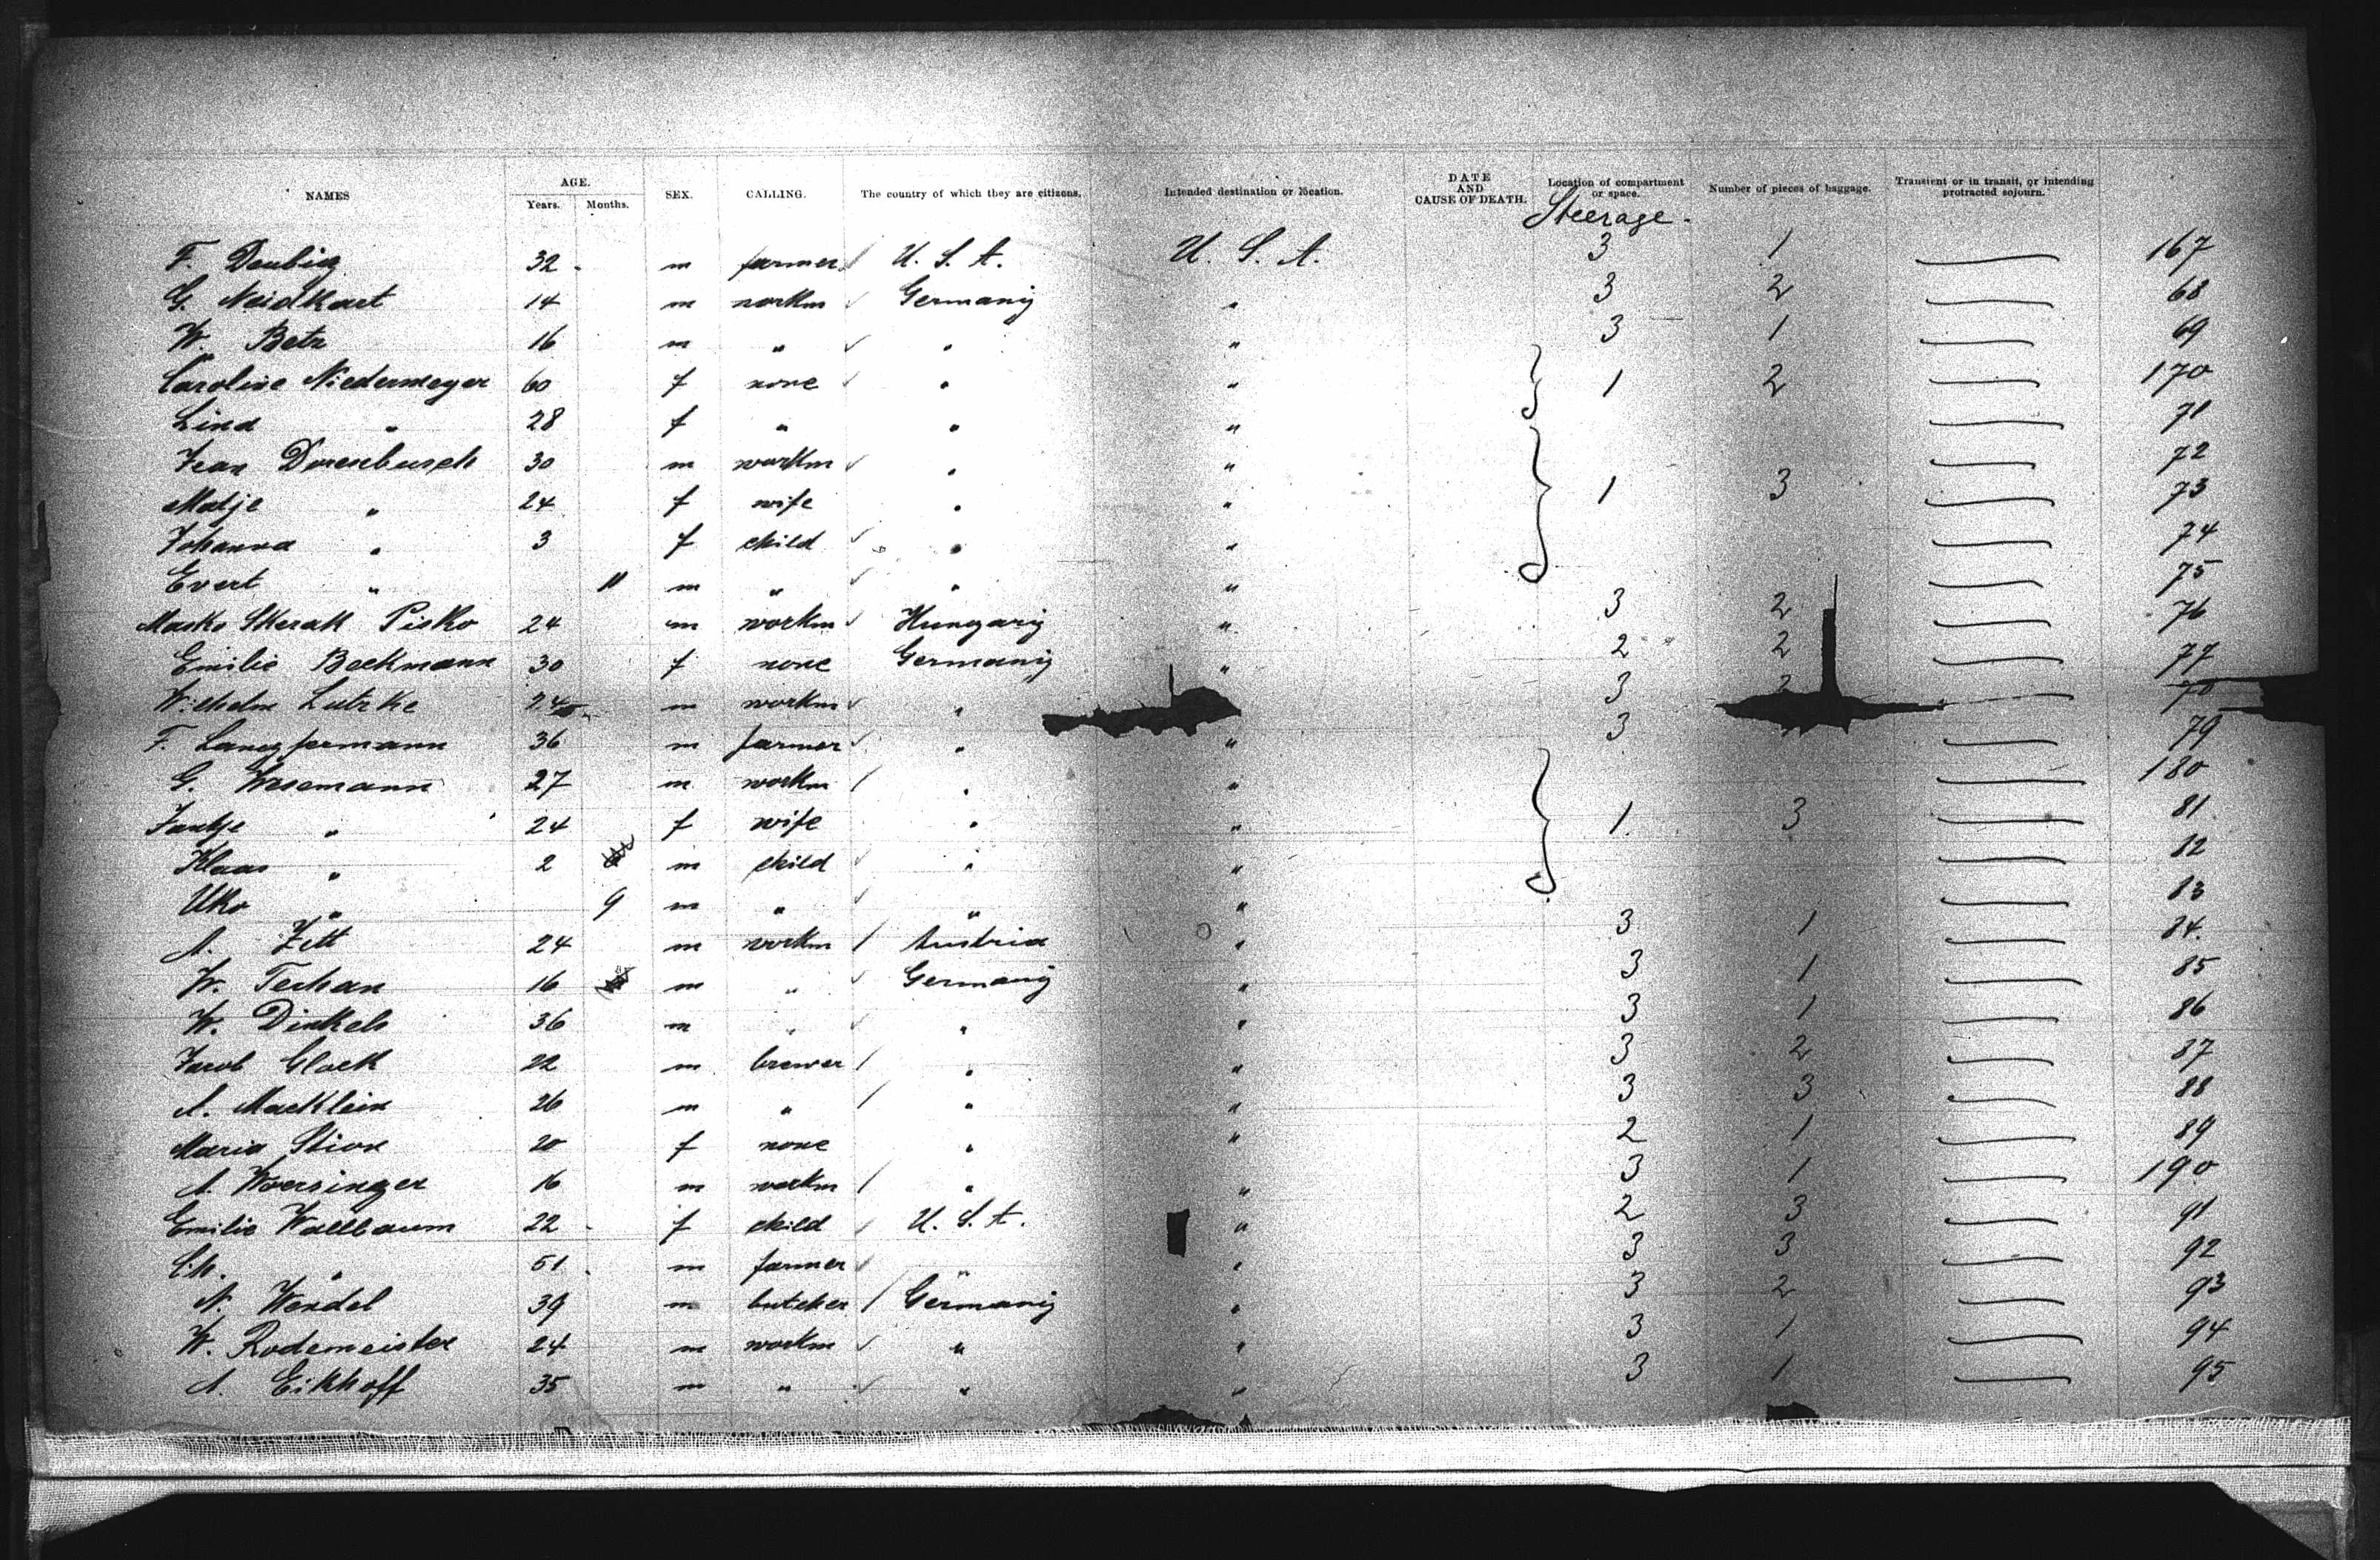 NAMES AGE. Years. Months. SEX. CALLING. The country of which they are citizens. Intended destination or location. DATE AND CAUSE OF DEATH. Location of compartment or space. Number of pieces of baggage. Transient or in transit, or intending protracted sojourn.
Steerage.
F. Doubig 32 m farmer U. S. A. U. S. A. 3 1 167
G. Neidhart 14 m workm Germany " 3 2 68
W. Betz 16 m " " " 3 1 69
Caroline Niedermeyer 60 f none " " 1 2 170
Lina " 28 f " " " 71
Jean Dorenbusch 30 m workm " " 72
Matje " 24 f wife " " 1 3 73
Johanna " 3 f child " " 74
Evert " 11 m " " " 75
Masko Skerak Pisko 24 m workm Hungariy " 3 2 76
Emilie Beckmann 30 f none Germany " 2 2 77
Wilhelm Lutzke 24 m workm " 3 78
F. Langfermann 36 m farmer " " 3 79
G. Wesemann 27 m workm " " 180
Jantje " 24 f wife " " 1 3 81
Klaas " 2 m child " " 82
Uko " 9 m " " " 83
A. Zett 24 m workm Austria " 3 1 84.
W. Techan 16 m " Germany " 3 1 85
W. Dinkels 36 m " " " 3 1 86
Jacob Glock 22 m brewer " " 3 2 87
A. Macklein 26 m " " " 3 3 88
Maria Stion 20 f none " " 2 1 89
A. Woersinger 16 m workm " " 3 1 190
Emilie Wallbaum 22 f child U. S. A. " 2 3 91
Ch. " 51 m farmer " " 3 3 92
N. Wendel 39 m butcher Germany " 3 2 93
W. Rodemeister 24 m workm " " 3 1 94
A. Eikhoff 35 m " " " 3 1 95